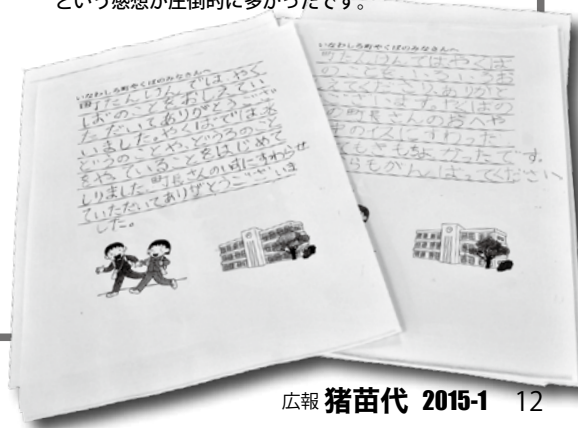 という感想が圧倒的に多かったです。
いなわしろ町やくばのみなさんへ
町たんけんでは、やく
ばのことをおしえてい
ただいてありがとうござ
いました。やくばではも
どうろのこと
をやっていることをはじめて
しりました。町長さんのいすにすわらせ
ていただいてありがとうございま
した。
いなわしろ町やくばのみなさんへ
町たんけんではやくば
のことをいろいろお
えてくださりありがと
ございます。やくばの
町長さんのおへや
のイスにすわった
てもきもちよかったです。
らもがんばってください
広報 猪苗代 2015-1 12